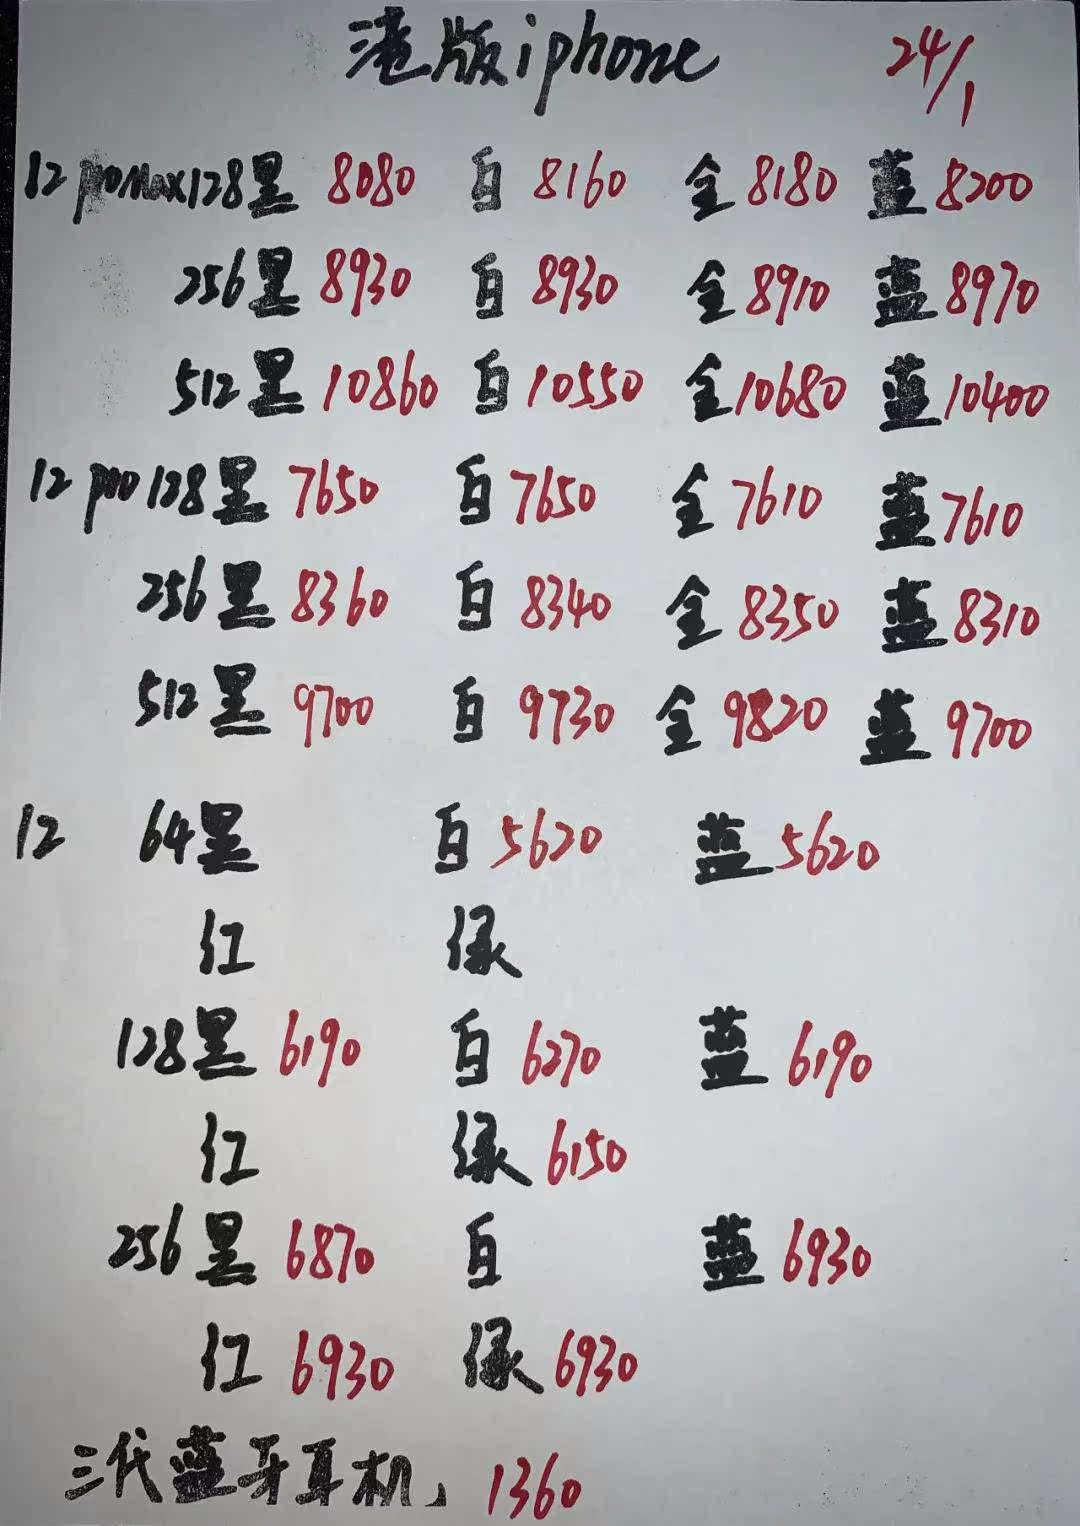 港版iphone 24/1
12 proMax128黑 8080 白 8160 金 8180 蓝 8200
256黑 8930 白 8930 金 8910 蓝 8970
512黑 10860 白 10550 金 10680 蓝 10400
12 pro 128黑 7650 白 7650 金 7610 蓝 7610
256黑 8360 白 8340 金 8350 蓝 8310
512黑 9700 白 9730 金 9820 蓝 9700
12 64黑 白 5620 蓝 5620
红 绿
128黑 6190 白 6270 蓝 6190
红 绿 6150
256黑 6870 白 蓝 6930
红 6930 绿 6930
三代蓝牙耳机」 1360